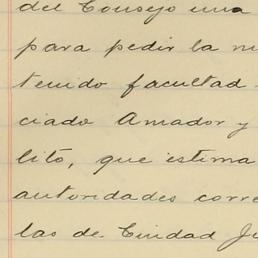 del Consejo una
para pedir la nu
tenido facultad
ciado Amador y
lito, que estima
autoridades corre
las de Ciudad Ju